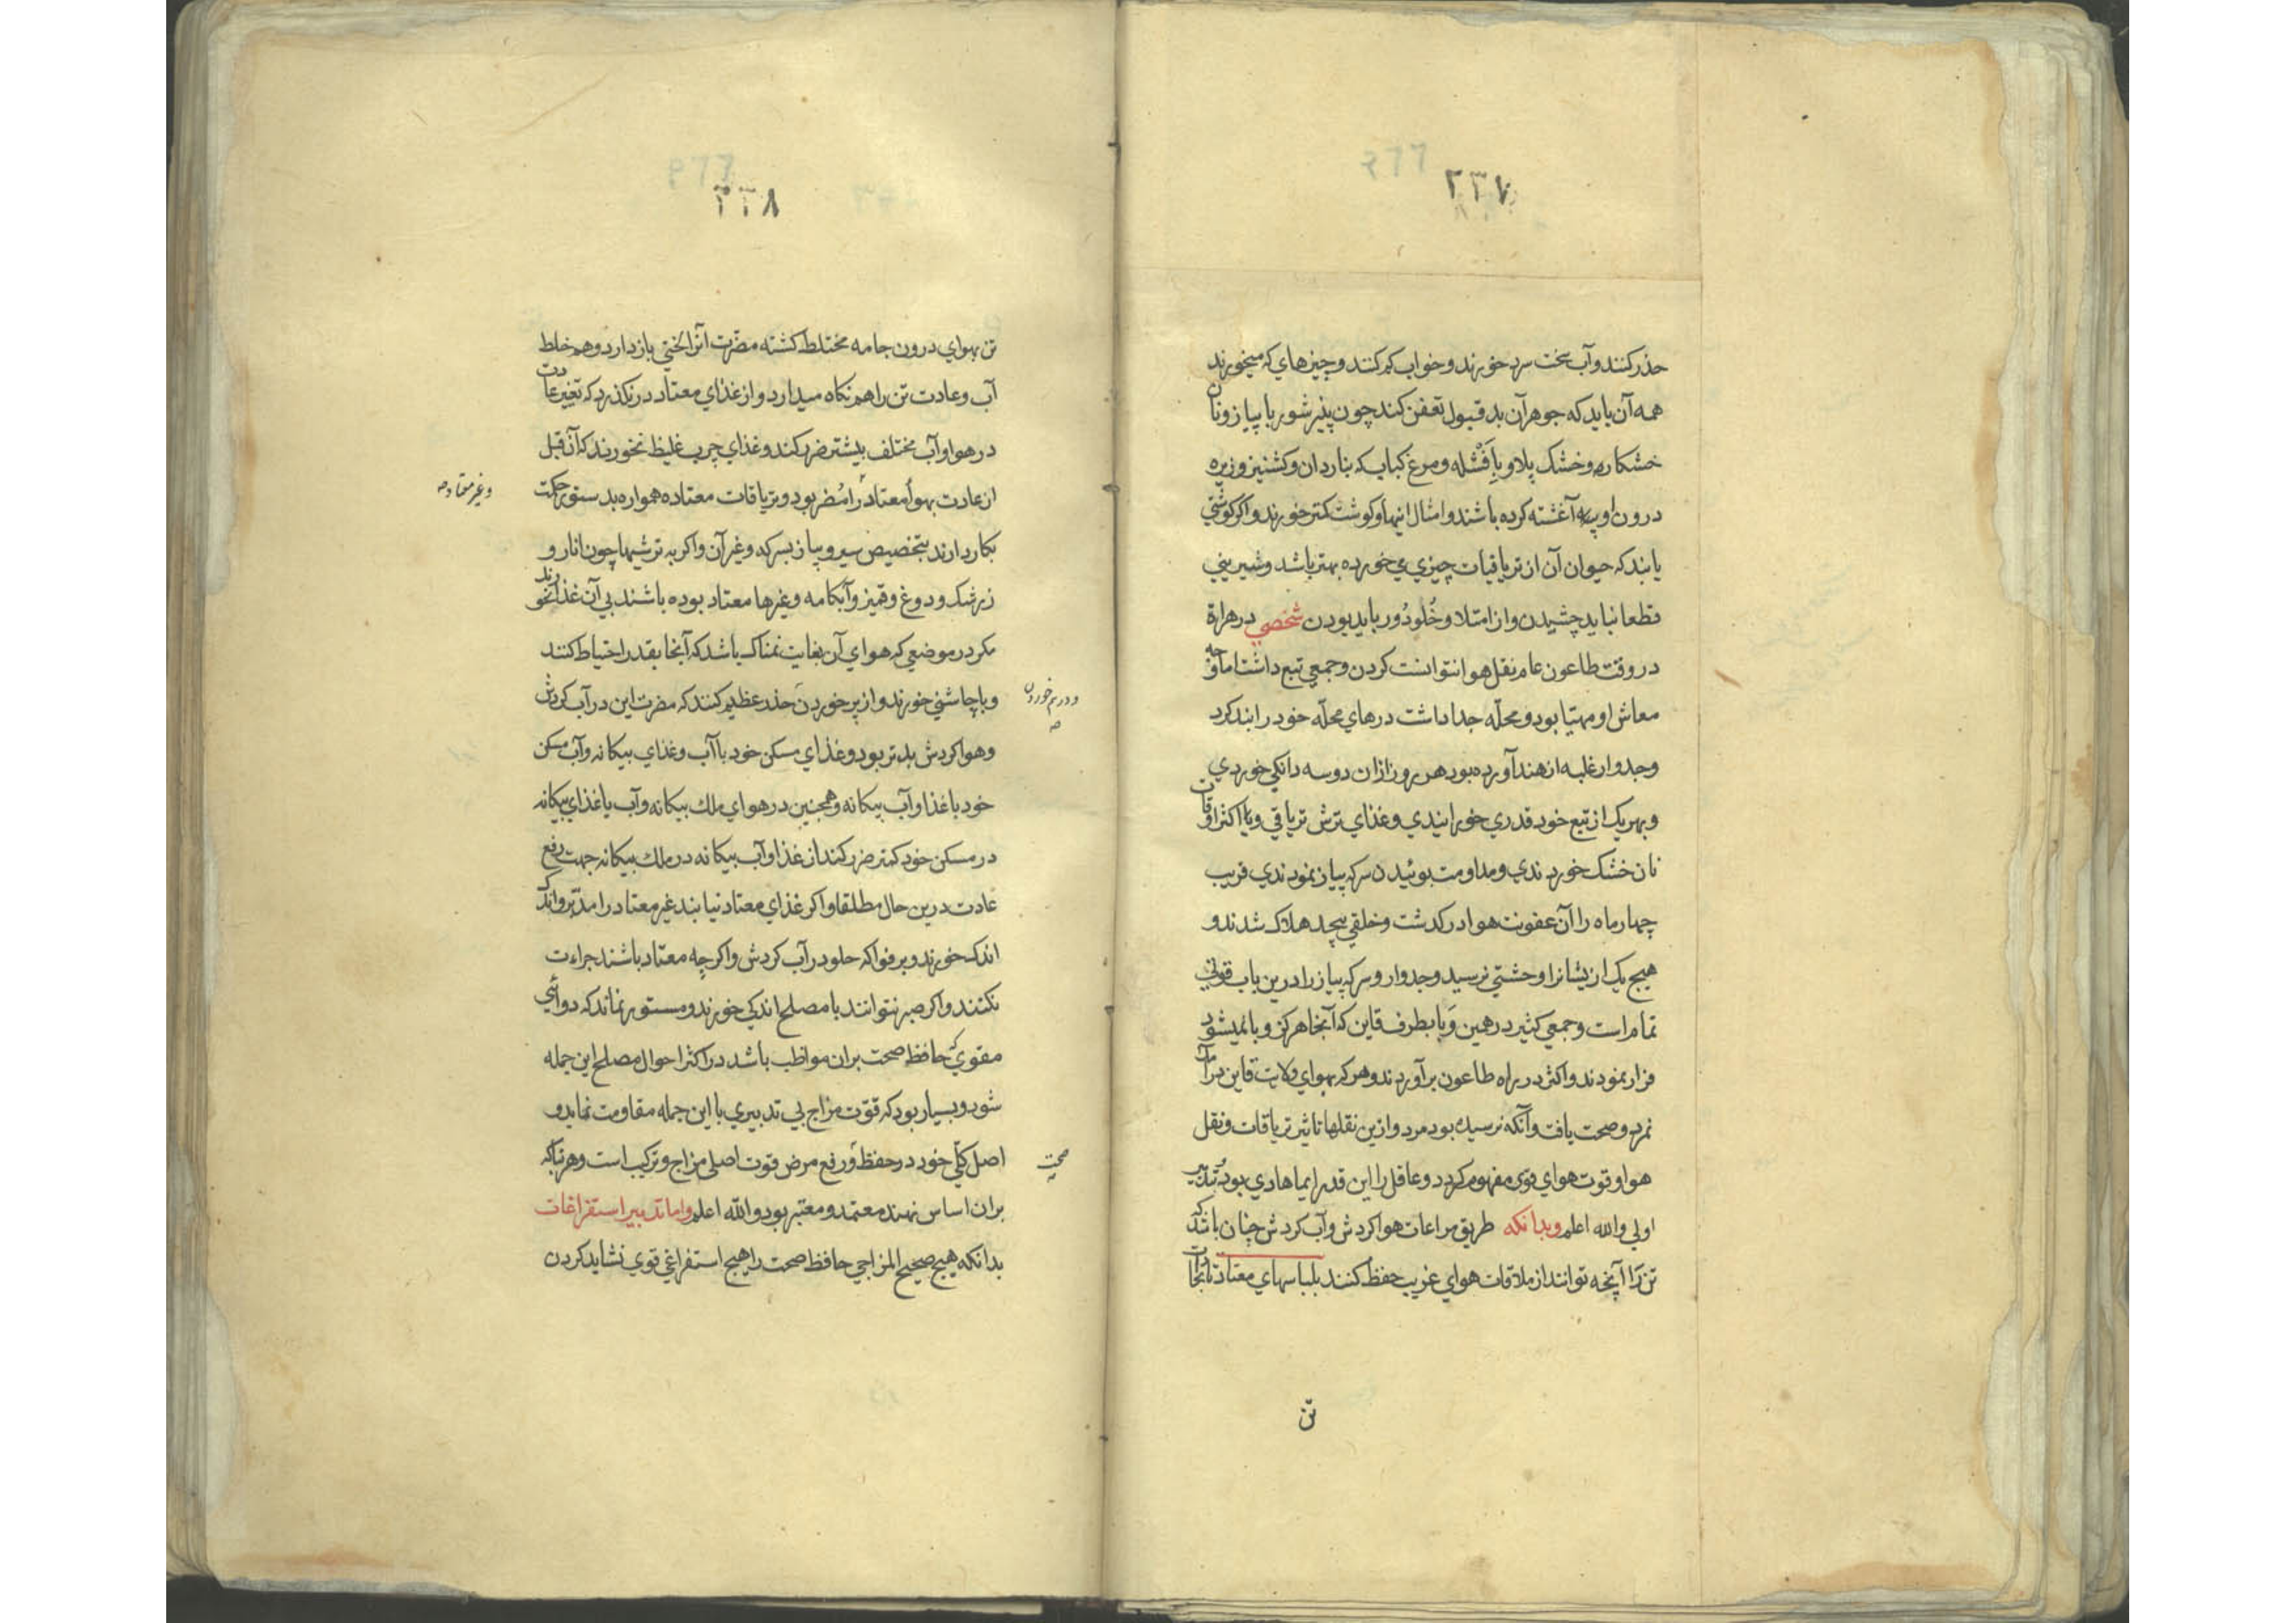 ۲۳۷
حذر کنند و آب سخت سرد خورند و خواب کم کنند و چیزهای که میخورند
همه آن باید که جوهر آن بد قبول تعفن کند چون پنیر شور با پیاز و نان
خشکاره و خشک پلاو با فشله و مرغ کباب که بناردان و کشنیز و زیره
درون او پیه آغشته کرده باشند و امثال اینها و کوشت کمتر خورند و اکر کوشتی
یابند که حیوان آن از تریاقیات چیزی می خورده بهتر باشد و شیرینی
قطعا نباید چشیدن و از امتلا و خلو دور باید بودن شخصی در هراة
در وقت طاعون عام نقل هوا نتوانست کردن و جمعی تبع داشت اما وجه
معاش او مهیا بود و محله جدا داشت درهای محله خود را بند کرد
و جدوار غلبه از هند آورده بود هر روز ازان دو سه دانکی خوردی
و بهر یک از تبع خود قدری خورانیدی و غذای ترش تریاقی و یا اکثر اوقات
نان خشک خوردندی و مداومت بوئیدن سرکه پیاز نمودندی قریب
چهار ماه را آن عفونت هوا در کدشت و خلقی بیحد هلاک شدند و
هیج یک ازیشانرا وحشتی نرسید و جدوار و سرکه پیاز را درین باب قوتی
تمام است و جمعی کثیر در همین وبا بطرف قاین که آنجا هرکز وبا نمیشود
فرار نمودند و اکثر در راه طاعون برآوردند و هر که بهوای ولایت قاین درآمد
نمرد و صحت یافت و آنکه نرسیده بود مرد و ازین نقلها تاثیر تریاقات و نقل
هوا و قوت هوای قوی مفهوم کردد و عاقل را این قدر ایما هادی بود تدبیر
اولی والله اعلم وبدانکه طریق مراعات هوا کردش و آب کردش چنان باشد که
تن را آنچه توانند از ملاقات هوای غریب حفظ کنند بلباسهای معتاد تا بخارات
تن
۲۳۸
تن بهوای درون جامه مختلط کشته مضرت آنرا لختی بازدارد و هم خلط
آب و عادت تن را هم نکاه میدارد و از غذای معتاد در نکذرد که تغییر عادت
در هوا و آب مختلف بیشتر ضرر کند و غذای چرب غلیظ نخورند که آن قبل
از عادت بهوا معتاد را مضر بود و تریاقات معتاده همواره بدستور حکمت
وغیر معتاد صح
بکار دارند بتخصیص سیر و پیاز بسرکه و غیر آن و اکر به ترشیها چون انار و
زرشک و دوغ و قمیز و آبکامه و غیرها معتاد بوده باشند بی آن غذا نخورند
مکر در موضعی که هوای آن بغایت نمناک باشد که آنجا بقدر احتیاط کنند
و با چاشنی خورند و از پر خوردن حذر عظیم کنند که مضرت این در آب کردش
و درهم خوردن صح
و هوا کردش بدتر بود و غذای مسکن خود با آب و غذای بیکانه و آب مسکن
خود با غذا و آب بیکانه و همچنین در هوای ملک بیکانه و آب یا غذای بیکانه
در مسکن خود کمتر ضرر کند از غذا و آب بیکانه در ملک بیکانه جهت رفع
عادت درین حال مطلقا و اکر غذای معتاد نیابند غیر معتاد را مدبر و اندک
اندک خورند و بر فواکه حلو در آب کردش و اکرچه معتاد باشند جراءت
نکنند و اکر صبر نتوانند با مصلح اندکی خورند و مستور نماند که دوائی
مقوی که حافظ صحت بران مواظب باشد در اکثر احوال مصلح این جمله
شود و بسیار بود که قوت مزاج بی تدبیری با این جمله مقاومت نماید و
اصل کلی خود در حفظ و رفع مرض قوت اصلی مزاج و ترکیب است و هر بنا که
صحت صح
بران اساس نهند معتمد و معتبر بود والله اعلم واما تدبیر استفراغات
بدانکه هیج صحیح المزاجی حافظ صحت را هیج استفراغی قوی نشاید کردن